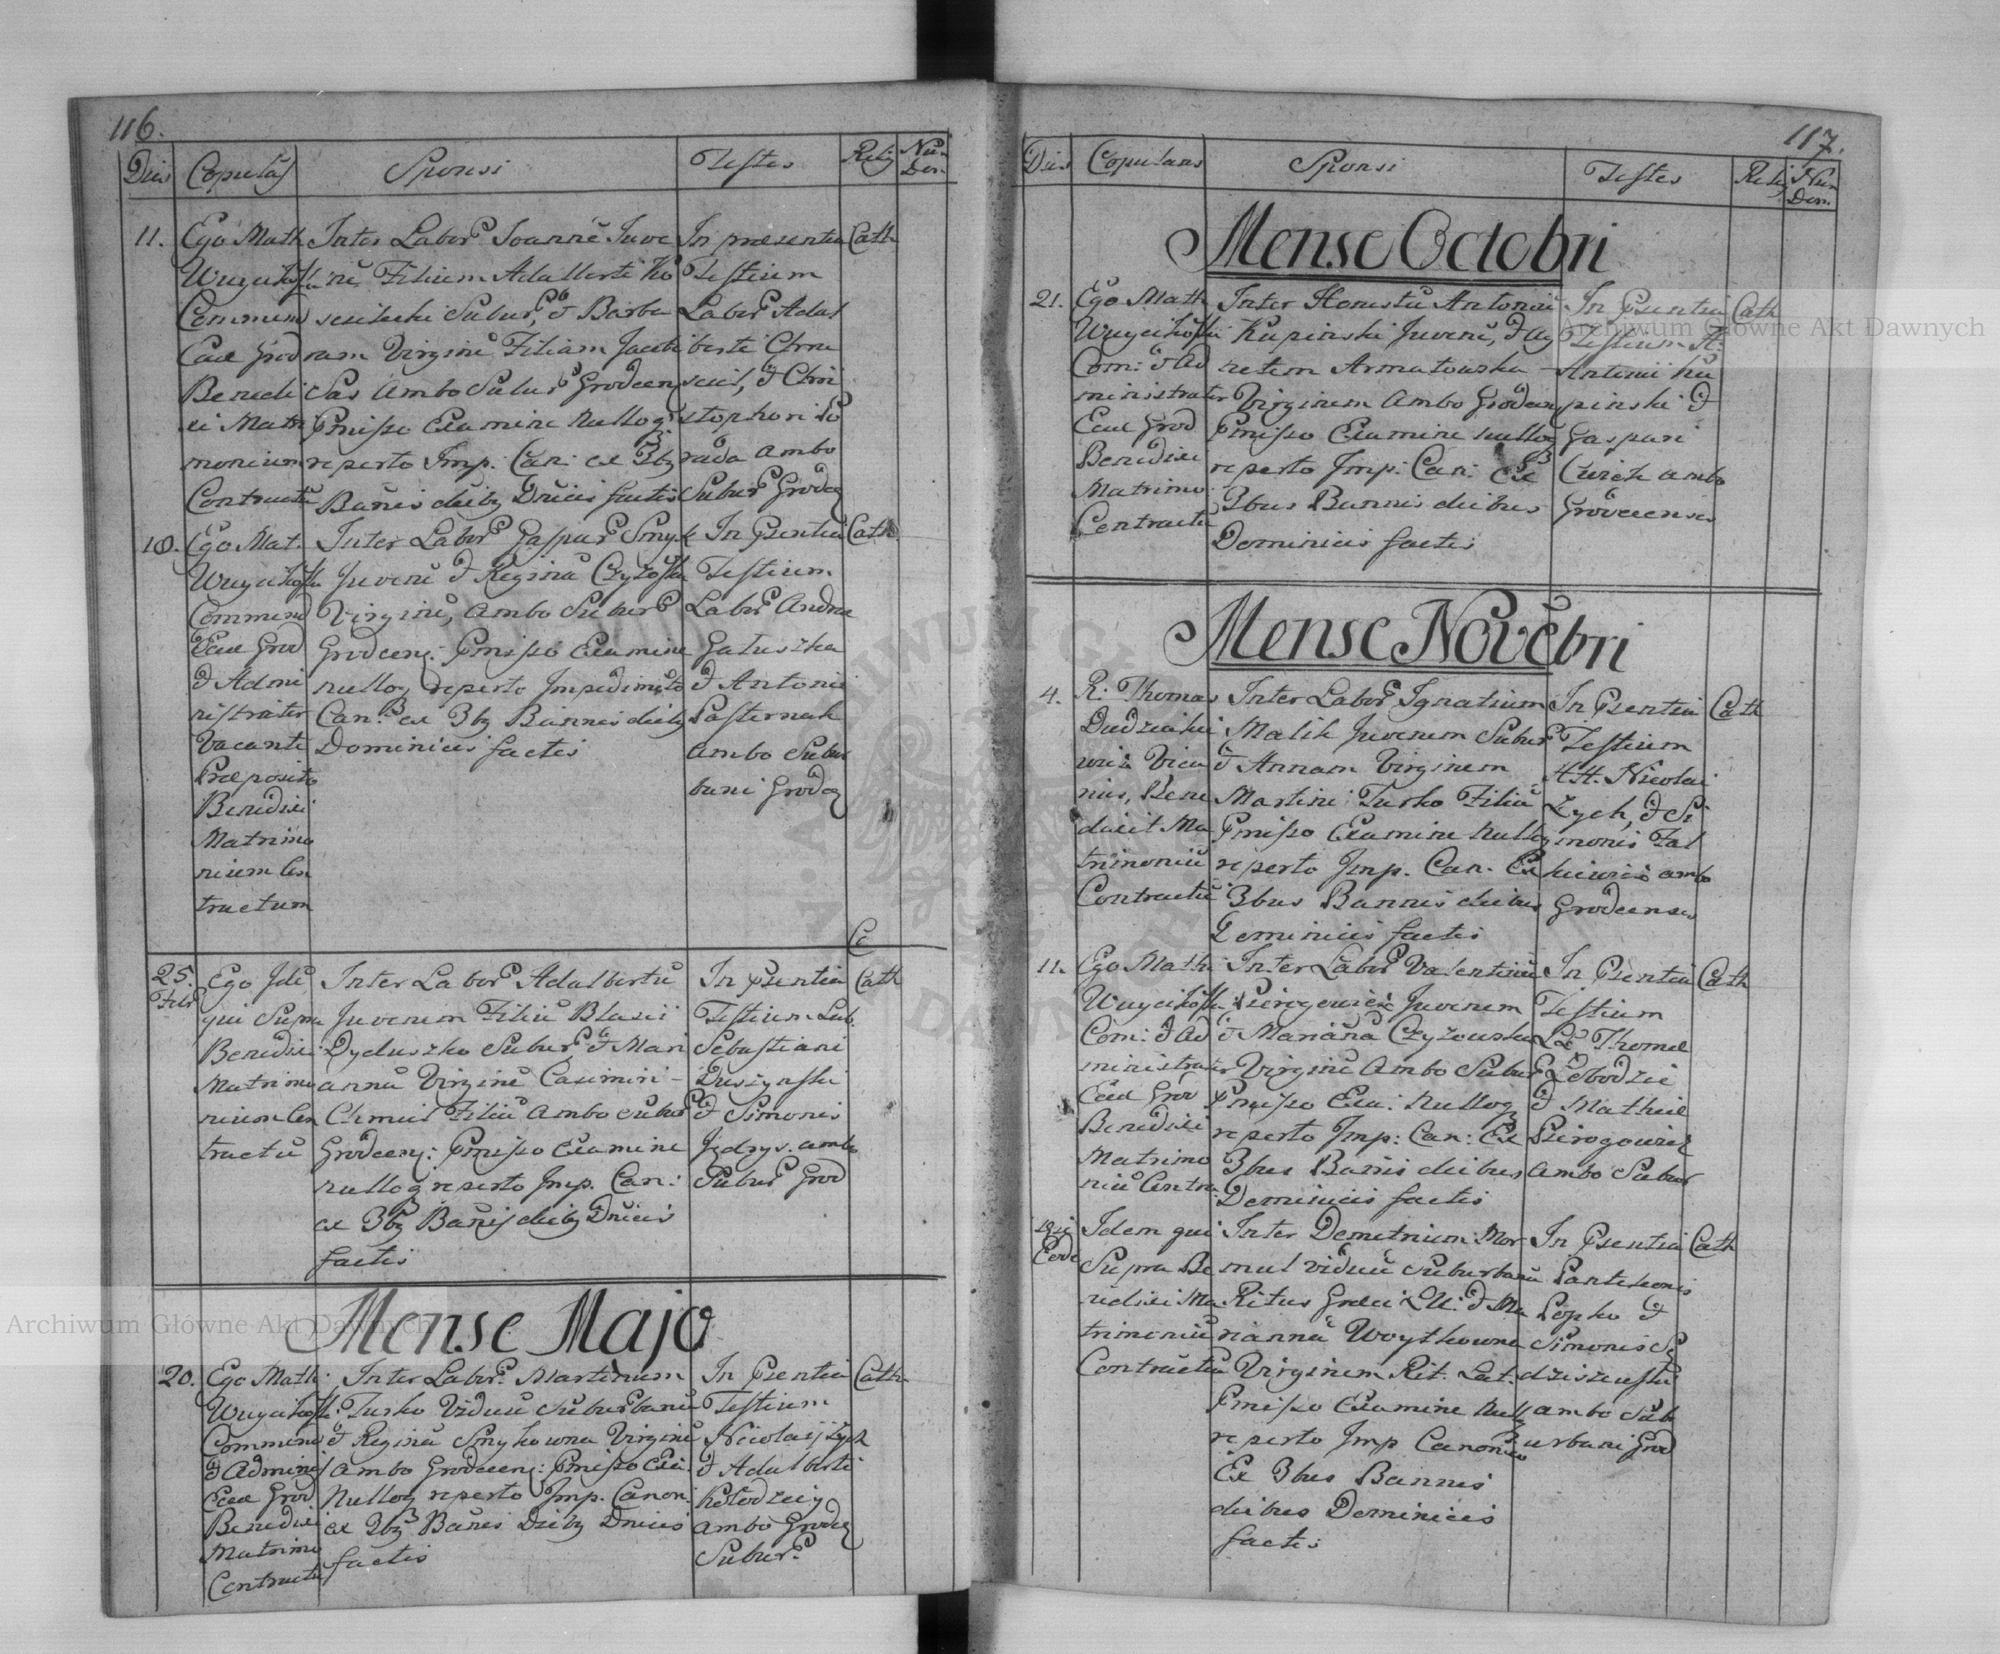 116.
Dies Copulās Sponsi Testes Relig Nu Dom.
11.
Ego Math
Commend
Benedi
ci Matri
monium
Contractū
Inter Labor. Joannē Juve
nē, Filium Adalberti Ko
Subur, & Barba
ram Virginē Filiam
ambo Subur Grodecen
Pmisso Examine nulloq
reperto Imp: Can: ex 3bq
Banis diebq Dnicis factis
In praesentia
Testium
Labor Adal
berti
& Chri
stophori
ambo
Subur Grodeq
Cath
18.
Ego Mat.
Commend
Eccl Grod
& Admi
nistrator
Vacante
Praeposito
Benedixi
Matrimo
nium Con
tractum
Inter Labor Gaspar Smyk
Juvenē & Reginā
Virginē, ambo Subur
Grodecen: Pmisso Examine
nulloq reperto Impedimēto
Can: ex 3bq Bannis diebq
Dominicis factis
In Psentia
Testium
Labor Andrae
Galuszka
& Antonii
Pasternak
ambo Subur
bani Grodeq
Cath
25.
Febr
Ego Idē
qui Supra
Benedixi
Matrimo
nium Con
tractū
Inter Labor Adalbertū
Juvenem Filiū Blasii
Dyduszko Subur & Mari
annā Virginē Casimiri
Chmiel Filiā ambo Subur
Grodecen: Pmisso Examine
nulloq reperto Imp. Can:
ex 3bq Banis diebq Dnicis
factis
In Psentia
Testium Lab.
Sebastiani
& Simonis
Jędrys. ambo
Subur Grod
Cath
Mense Majo
20.
Ego Math:
Commend
& Adminis
Eccl Grod
Benedixi
Matrimo
Contractū
Inter Labor. Martinum
Turko Viduū Suburbanū
& Reginā Smykowna Virginē
ambo Grodecen: Pmisso Exa
Nulloq reperto Imp. Canon:
ex 3bq Banis Diebq Dnicis
factis
In Psentia
Testium
Nicolai Zych
& Adalberti
Kołodzeiy
ambo Grodeq
Subur.
Cath
117.
Dies Copulans Sponsi Testes Relig Num Dom.
Mense Octobri
21.
Ego Math
Com: & Ad
ministrator
Eccl Grod
Benedixi
Matrimo
Contractū
Inter Honestū Antoniū
Kupinski Juvenē, & Ag
netem Armatowska
Virginem ambo Grodecen
Pmisso Examine nulloq
reperto Imp: Can: Ex
3bus Bannis diebus
Dominicis factis
In Psentia
Testium H:
Antonii Ku
pinski &
Gaspari
ambo
Grodecenses
Cath
Mense Novēbri
4.
R: Thomas
Vica
rius, Bene
dixit Ma
trimoniū
Contractū
Inter Labor Ignatium
Malik Juvenem Subur
& Annam Virginem
Martini Turko Filiā
Pmisso Examine Nulloq
reperto Imp. Can. Ex
3bus Bannis diebus
Dominicis factis
In Psentia
Testium
H.H. Nicolai
Zych, & Si
monis Fal
kiewicz ambo
Grodecenses
Cath
11.
Ego Math:
Com: & Ad
ministrator
Eccl Grod
Benedixi
Matrimo
niū Contra:
Inter Labor Valentinū
Pierogowicz Juvenem
& Mariānā Czyżowska
Virginē Ambo Subur
Pmisso Exa: Nulloq
reperto Imp: Can: Ex
3bus Banis diebus
Dominicis factis
In Psentia
Testium
LL Thomae
& Mathiae
Pierogowicz
ambo Subur
Cath
Idem qui
Supra Be
nedixi Ma
trimoniū
Contractū
Inter Demetrium Mor
mul viduū Suburbanū
Ritus Graeci & Ma
riannā Woytkowna
Virginem Rit. Lat.
Pmisso Examine Nulloq
reperto Imp Canonico
Ex 3bus Bannis
diebus Dominicis
factis
In Psentia
Pantheonis
Popko &
Simonis
ambo Sub
urbani Grod
Cath
Archiwum Główne Akt Dawnych
Archiwum Główne Akt Dawnych